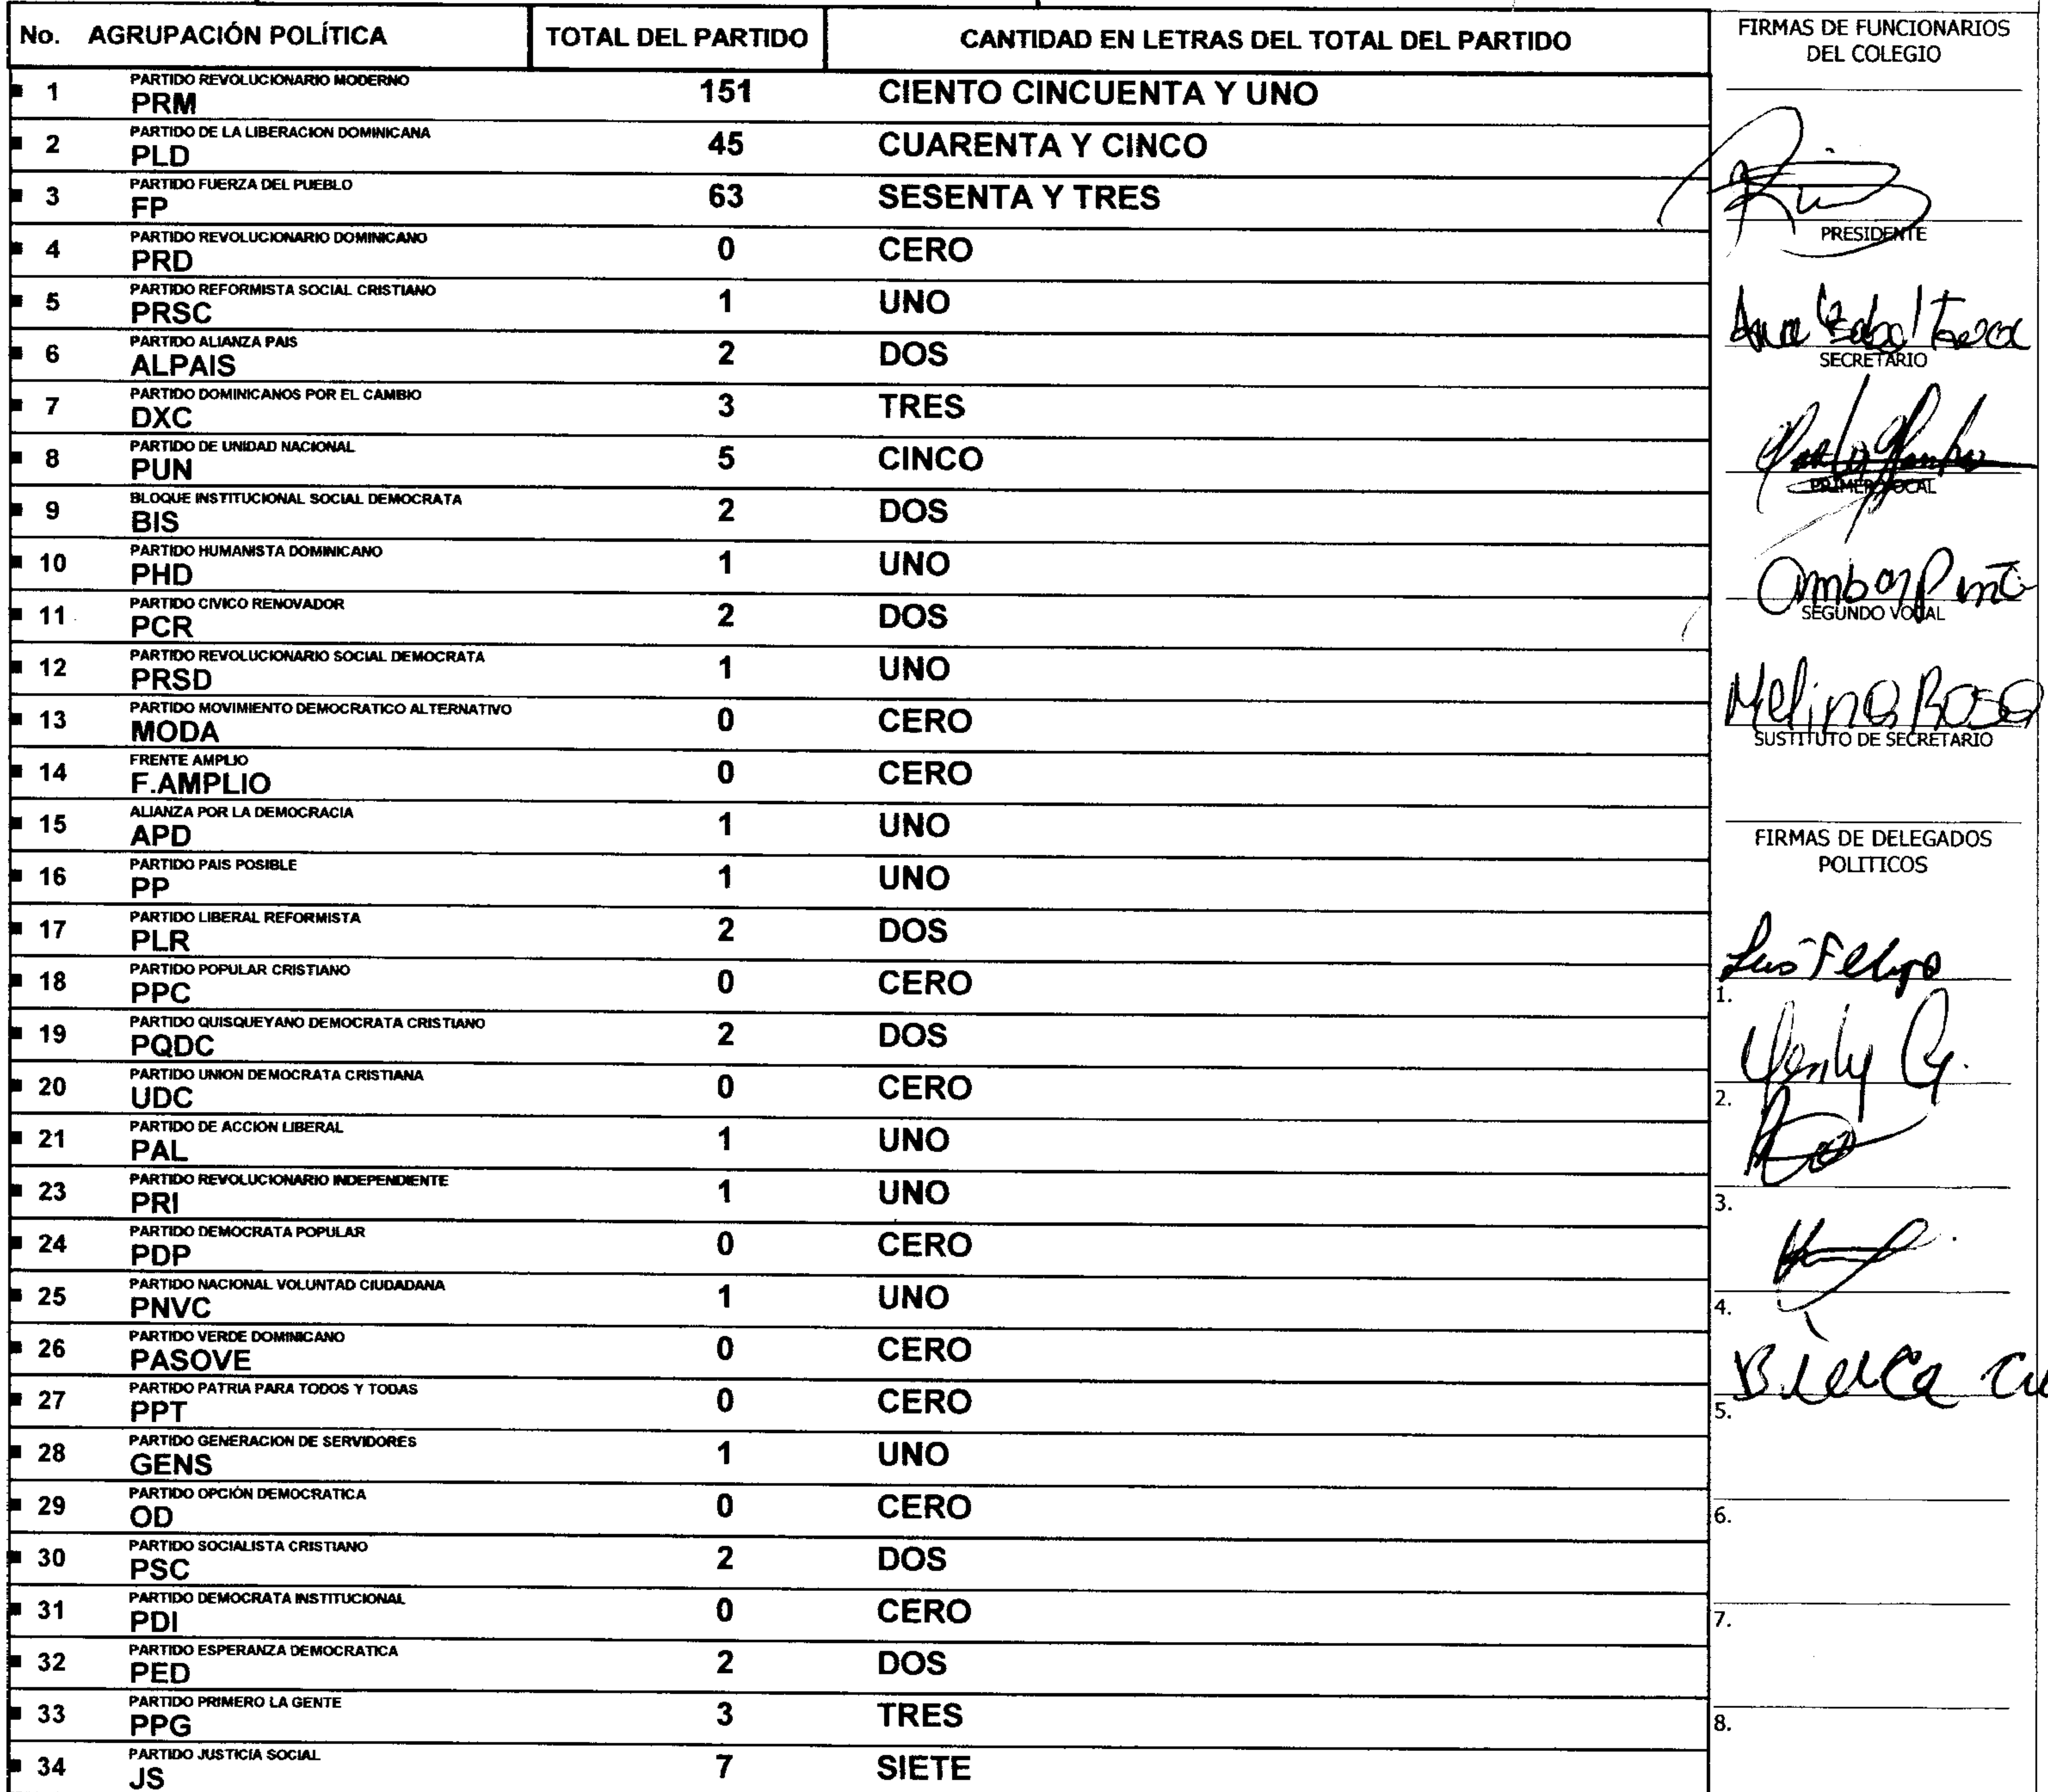 No. AGRUPACIÓN POLÍTICA TOTAL DEL PARTIDO CANTIDAD EN LETRAS DEL TOTAL DEL PARTIDO
1 PARTIDO REVOLUCIONARIO MODERNO
PRM 151 CIENTO CINCUENTA Y UNO
2 PARTIDO DE LA LIBERACION DOMINICANA
PLD 45 CUARENTA Y CINCO
3 PARTIDO FUERZA DEL PUEBLO
FP 63 SESENTA Y TRES
4 PARTIDO REVOLUCIONARIO DOMINICANO
PRD 0 CERO
5 PARTIDO REFORMISTA SOCIAL CRISTIANO
PRSC 1 UNO
6 PARTIDO ALIANZA PAIS
ALPAIS 2 DOS
7 PARTIDO DOMINICANOS POR EL CAMBIO
DXC 3 TRES
8 PARTIDO DE UNIDAD NACIONAL
PUN 5 CINCO
9 BLOQUE INSTITUCIONAL SOCIAL DEMOCRATA
BIS 2 DOS
10 PARTIDO HUMANISTA DOMINICANO
PHD 1 UNO
11 PARTIDO CIVICO RENOVADOR
PCR 2 DOS
12 PARTIDO REVOLUCIONARIO SOCIAL DEMOCRATA
PRSD 1 UNO
13 PARTIDO MOVIMIENTO DEMOCRATICO ALTERNATIVO
MODA 0 CERO
14 FRENTE AMPLIO
F.AMPLIO 0 CERO
15 ALIANZA POR LA DEMOCRACIA
APD 1 UNO
16 PARTIDO PAIS POSIBLE
PP 1 UNO
17 PARTIDO LIBERAL REFORMISTA
PLR 2 DOS
18 PARTIDO POPULAR CRISTIANO
PPC 0 CERO
19 PARTIDO QUISQUEYANO DEMOCRATA CRISTIANO
PQDC 2 DOS
20 PARTIDO UNION DEMOCRATA CRISTIANA
UDC 0 CERO
21 PARTIDO DE ACCION LIBERAL
PAL 1 UNO
23 PARTIDO REVOLUCIONARIO INDEPENDIENTE
PRI 1 UNO
24 PARTIDO DEMOCRATA POPULAR
PDP 0 CERO
25 PARTIDO NACIONAL VOLUNTAD CIUDADANA
PNVC 1 UNO
26 PARTIDO VERDE DOMINICANO
PASOVE 0 CERO
27 PARTIDO PATRIA PARA TODOS Y TODAS
PPT 0 CERO
28 PARTIDO GENERACION DE SERVIDORES
GENS 1 UNO
29 PARTIDO OPCIÓN DEMOCRATICA
OD 0 CERO
30 PARTIDO SOCIALISTA CRISTIANO
PSC 2 DOS
31 PARTIDO DEMOCRATA INSTITUCIONAL
PDI 0 CERO
32 PARTIDO ESPERANZA DEMOCRATICA
PED 2 DOS
33 PARTIDO PRIMERO LA GENTE
PPG 3 TRES
34 PARTIDO JUSTICIA SOCIAL
JS 7 SIETE
FIRMAS DE FUNCIONARIOS
DEL COLEGIO
PRESIDENTE
Ana
SECRETARIO
PRIMER VOCAL
SEGUNDO VOCAL
Melina Rosa
SUSTITUTO DE SECRETARIO
FIRMAS DE DELEGADOS
POLITICOS
Luis Felipe
1.
2.
3.
4.
5.
6.
7.
8.